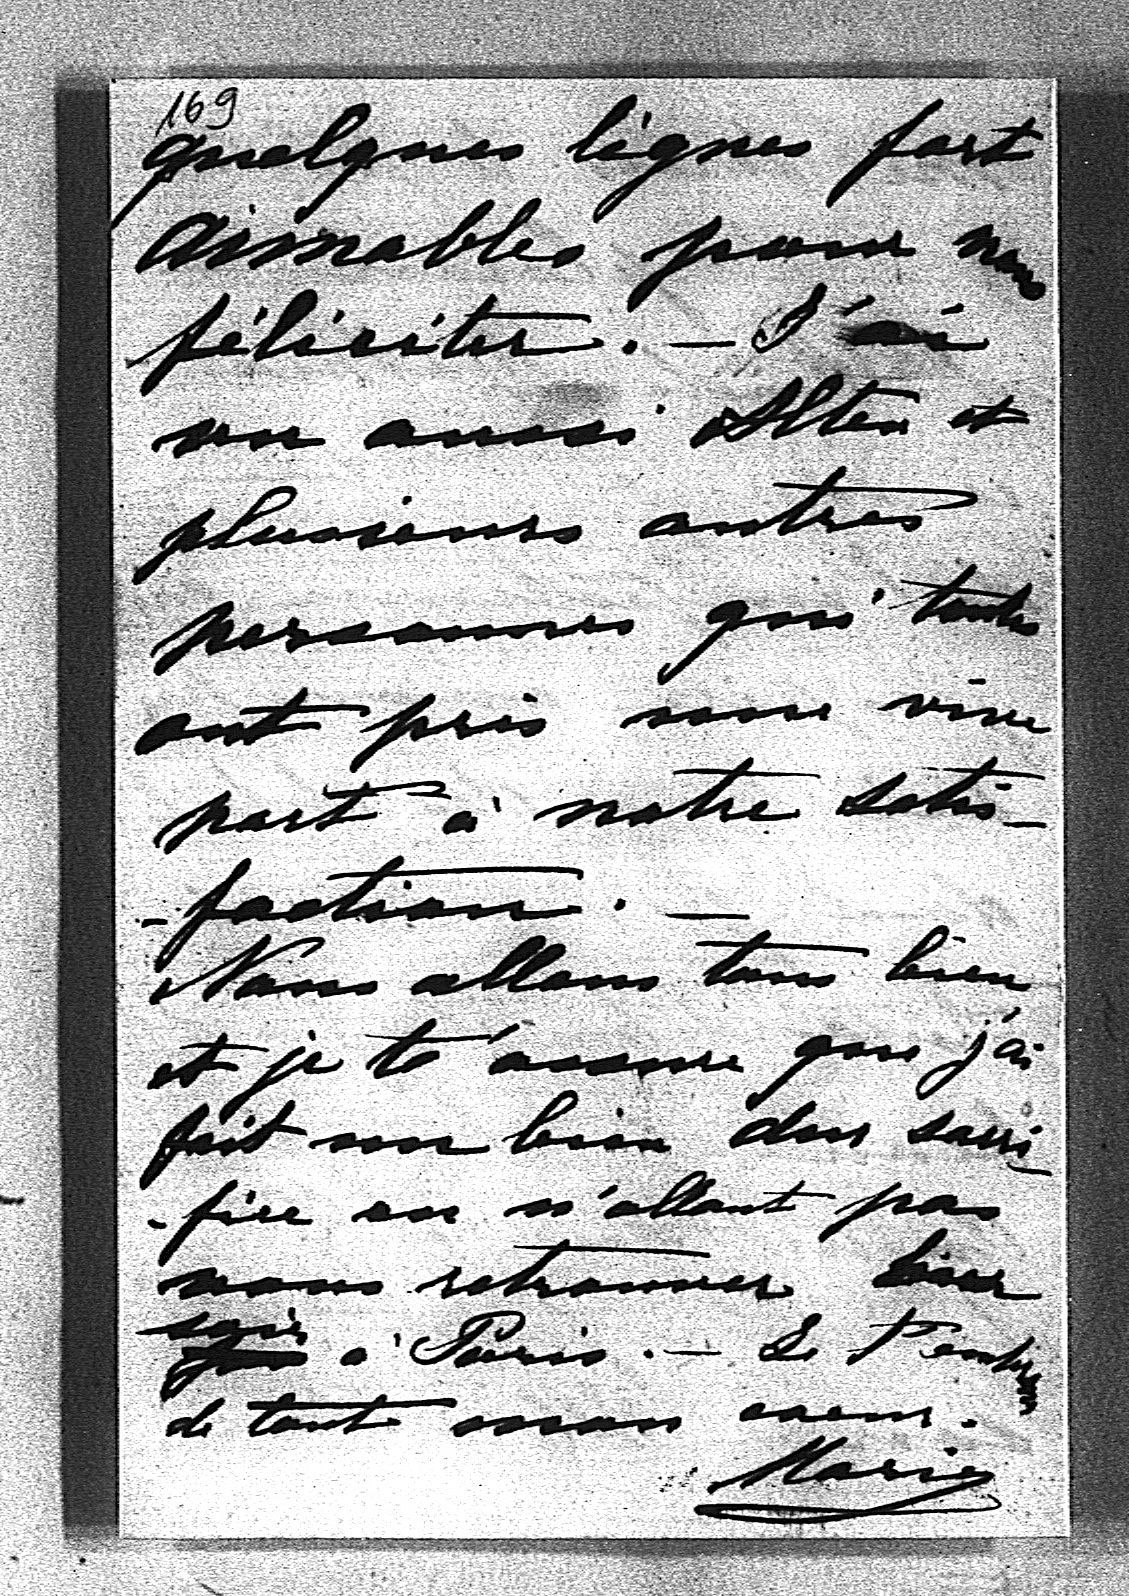 169
quelques lignes fort
aimables pour nous
féliciter. — J'ai
vu aussi Alten et
plusieurs autres
personnes qui toutes
ont pris une vive
part à notre satis-
-faction. —
Nous allons tous bien
et je t'assure que j'ai
fait un bien dur sacri-
-fice en n'allant pas
vous retrouver hier
soir à Paris. — Je t'embrasse
de tout mon coeur.
Marie